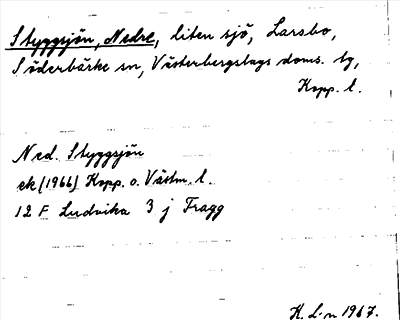 Styggsjön, Nedre, liten sjö, Larsbo,
Söderbärke sn, Västerbergslags doms. tg,
Kopp. l.
Ned. Styggsjön
ek (1966) Kopp. o. Västm. l.
12 F Ludvika 3 j Fragg
K. L-n 1967.